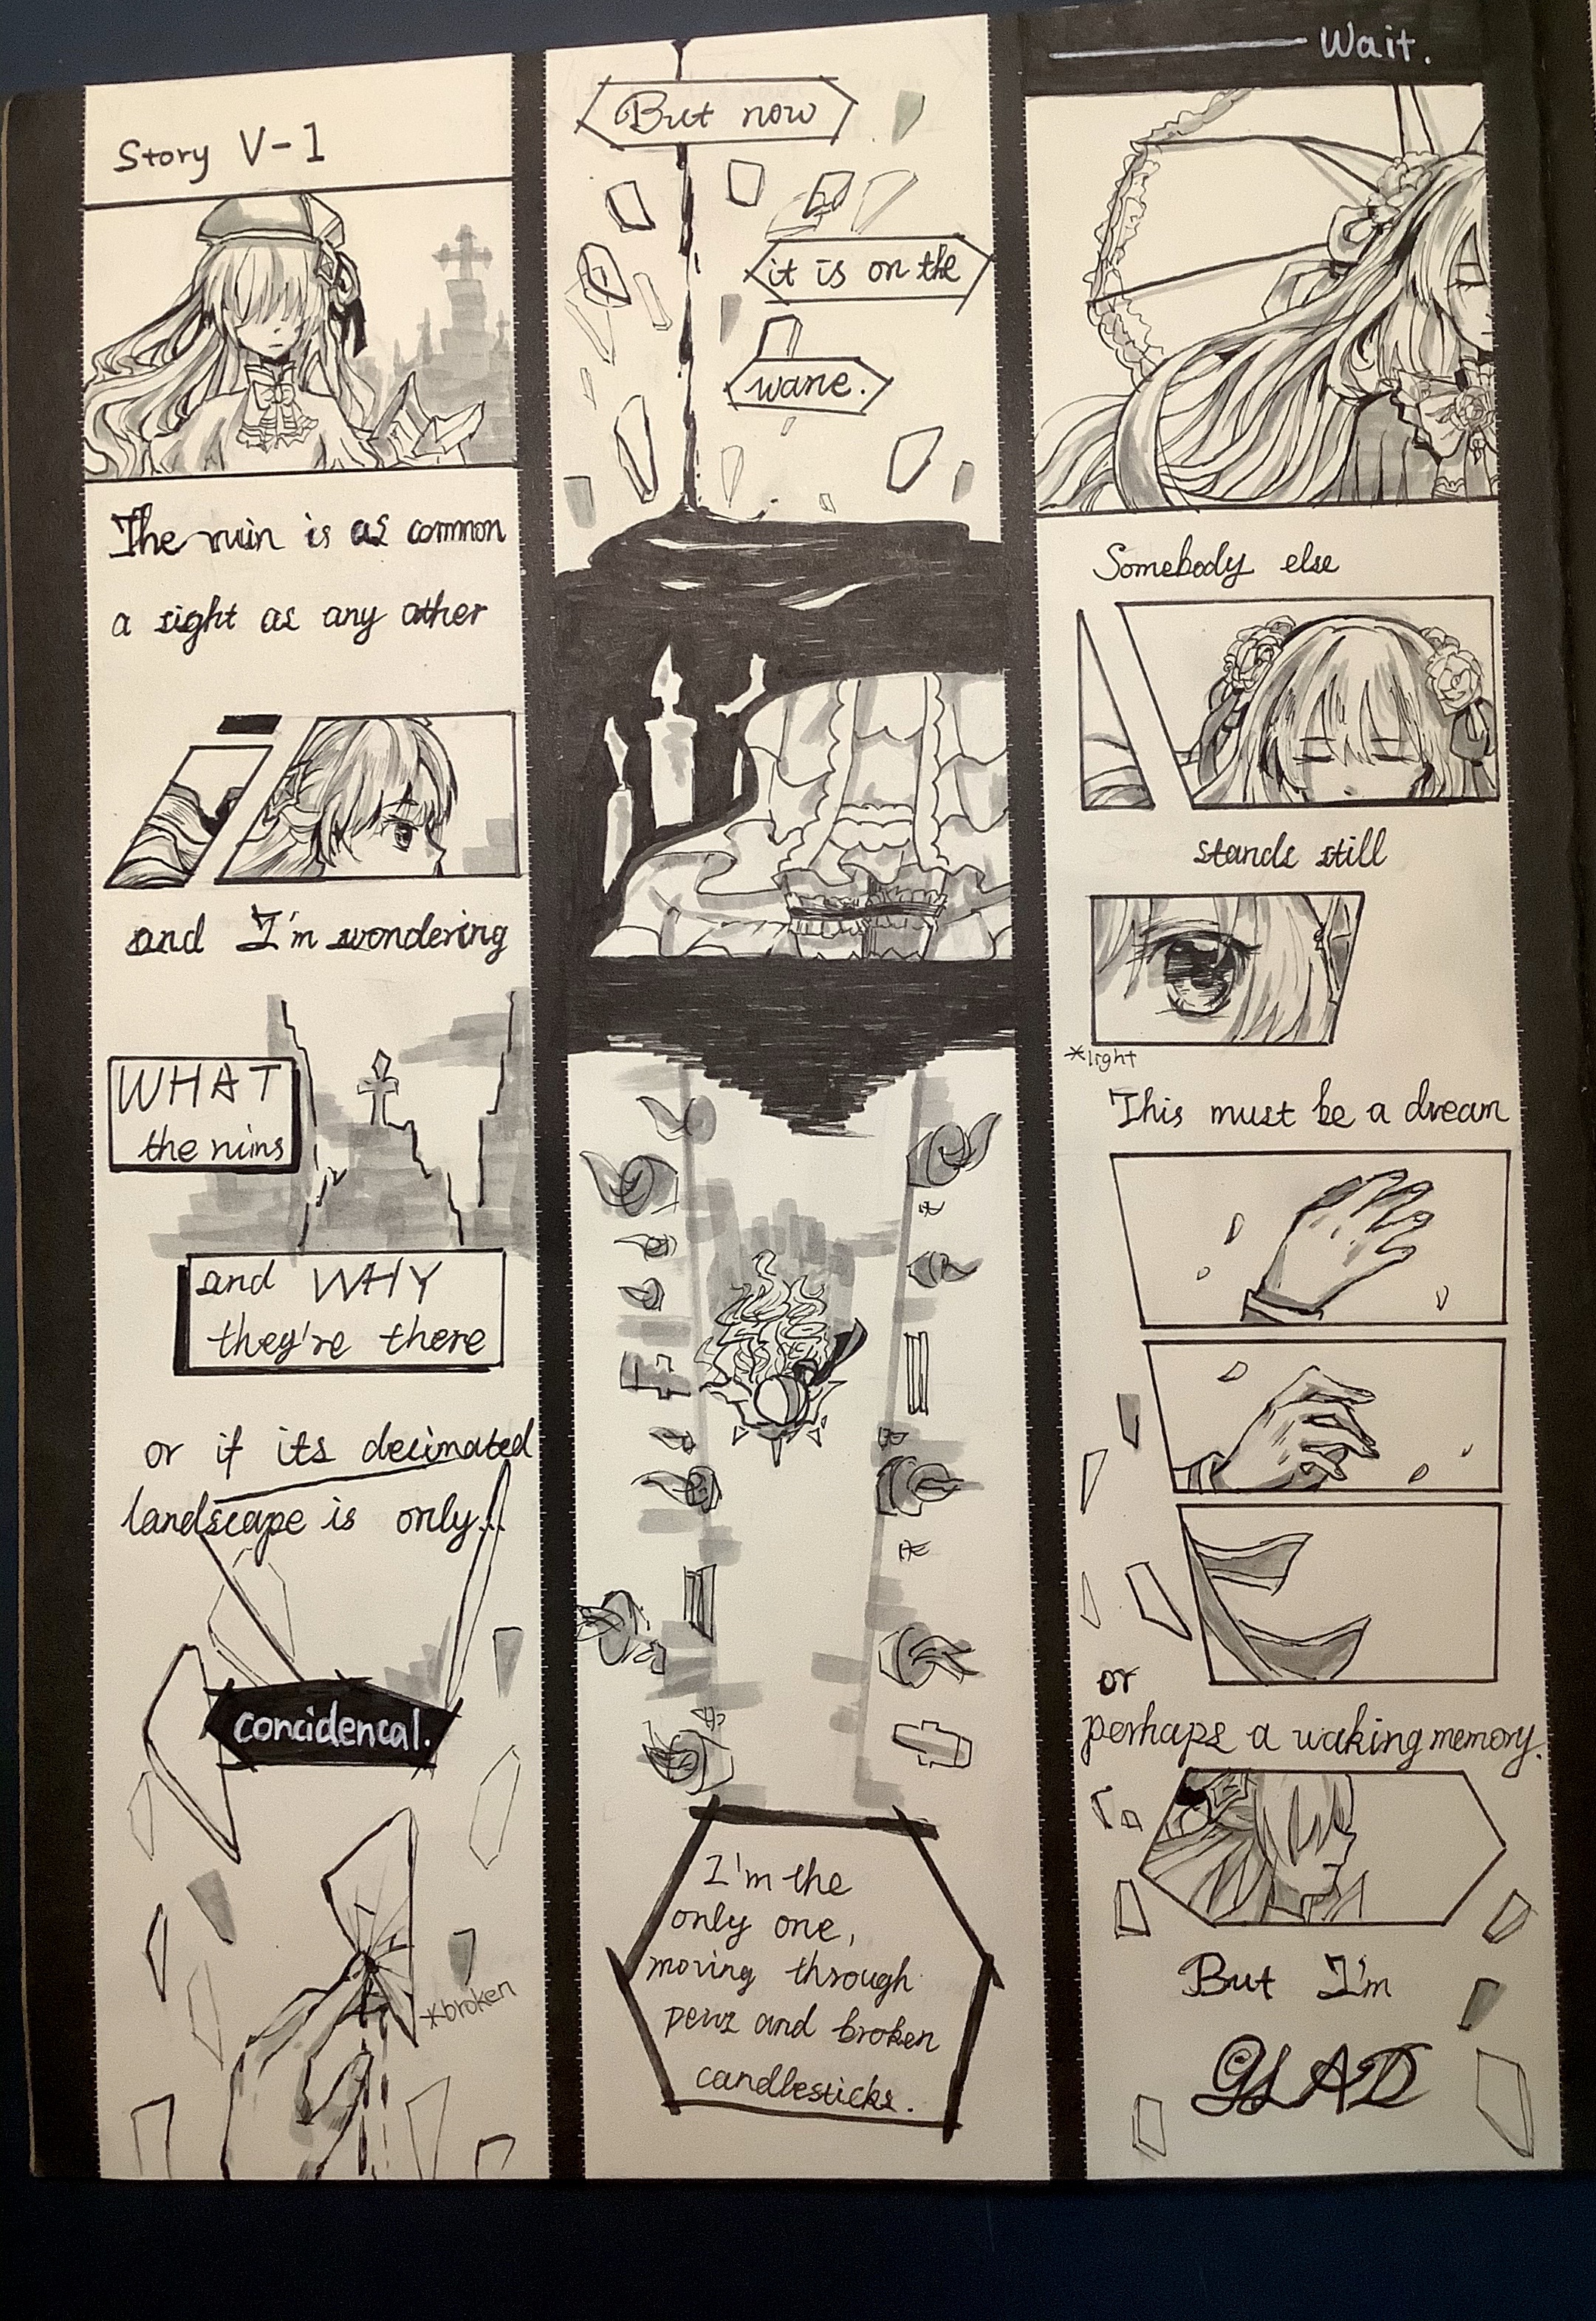 Story V-1
The ruin is as common
a sight as any other
and I'm wondering
WHAT
the ruins
and WHY
they're there
or if its decimated
landscape is only...
concidencal.
*broken
But now
it is on the
wane.
I'm the
only one,
moving through
pews and broken
candlesticks.
Wait.
Somebody else
stands still
*light
This must be a dream
or
perhaps a waking memory.
But I'm
GLAD